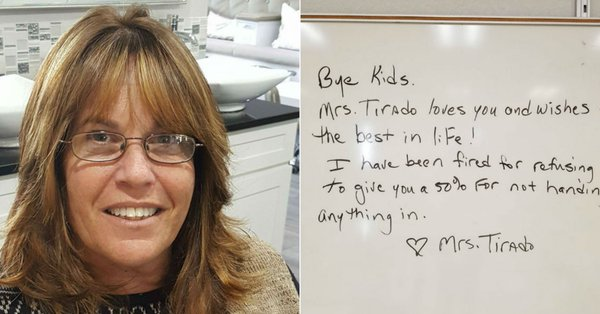 Bye Kids.
Mrs. Tirado loves you and wishes
the best in life!
I have been fired for refusing
to give you a 50% for not handing
anything in.
♡ Mrs. Tirado